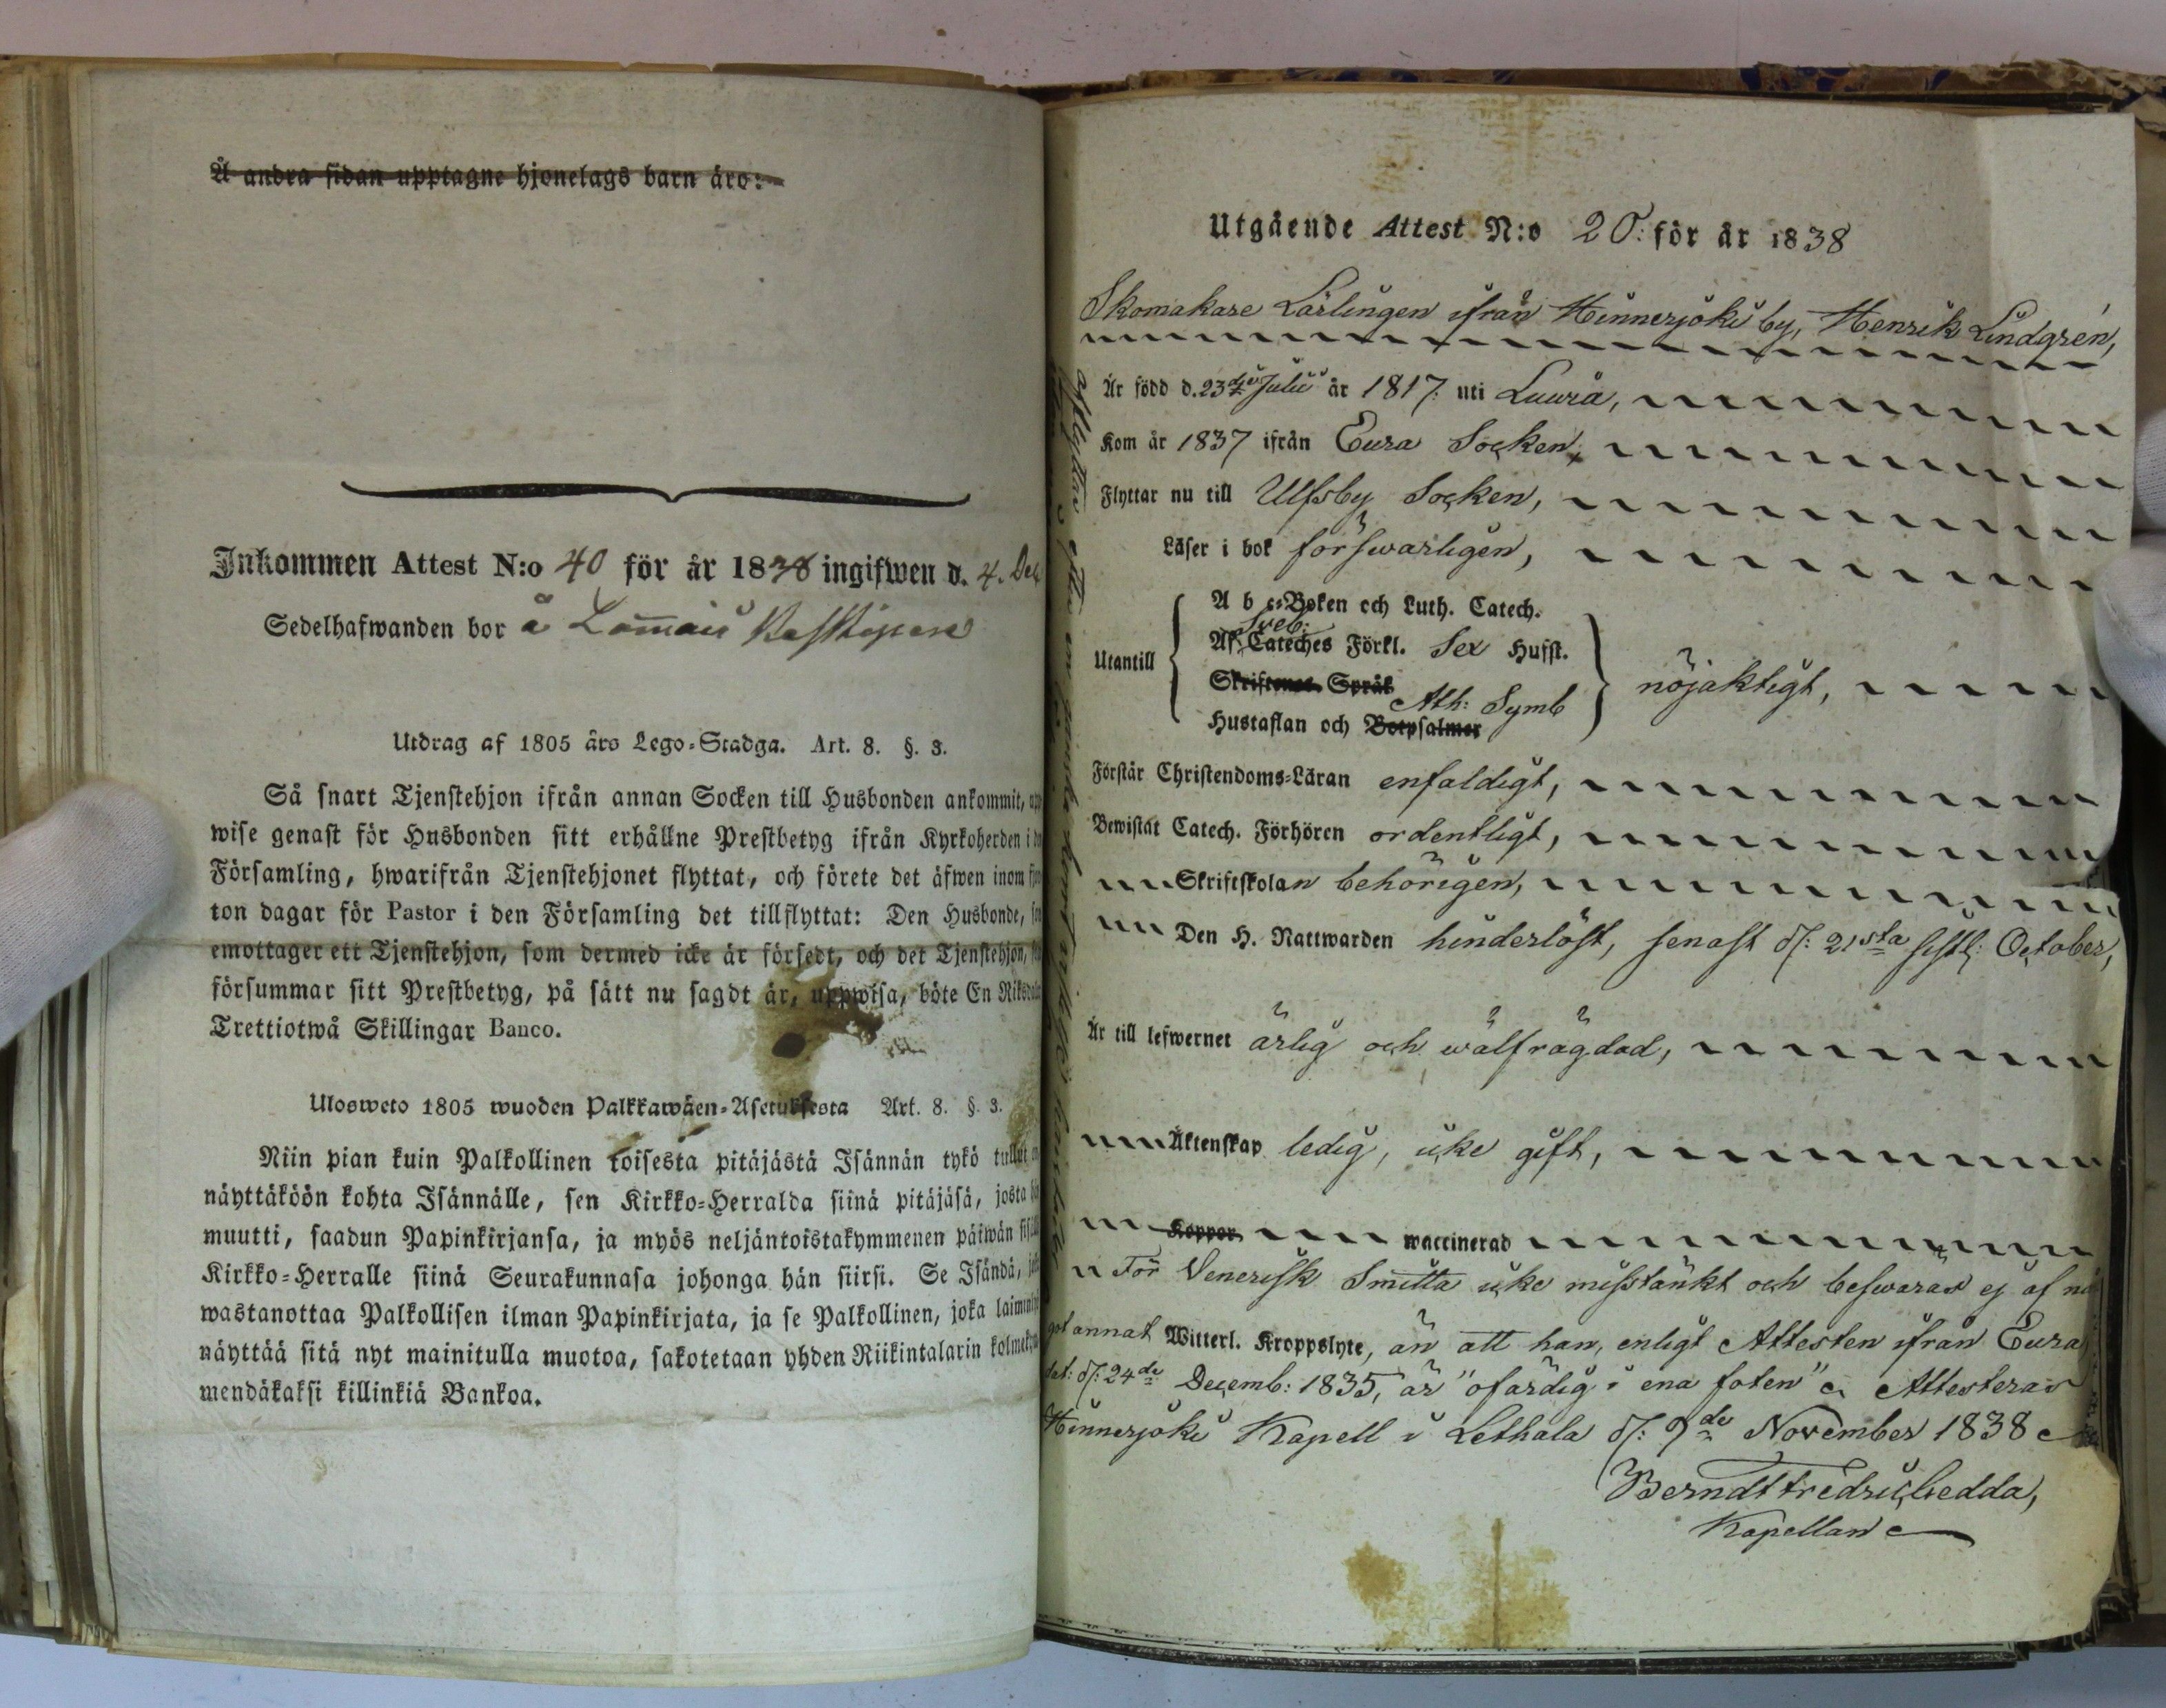 Å andra sidan upptagne hjonelags barn äro:
Inkommen Attest N:o 40 för år 1838 ingifwen d. 4. Dec
Sedelhafwanden bor å
Utdrag af 1805 års Lego-Stadga. Art. 8. §. 3.
Så snart Tjenstehjon ifrån annan Socken till Husbonden ankommit,
wise genast för Husbonden sitt erhållne Prestbetyg ifrån Kyrkoherden i
Församling, hwarifrån Tjenstehjonet flyttat, och förete det äfwen inom
ton dagar för Pastor i den Församling det tillflyttat: Den Husbonde,
emottager ett Tjenstehjon, som dermed icke är försedt, och det Tjenstehjon,
försummar sitt Prestbetyg, på sätt nu sagdt är, uppwisa, böte En
Trettiotwå Skillingar Banco.
Ulosweto 1805 wuoden Palkkawäen-Asetuksesta Art. 8. §. 3.
Niin pian kuin Palkollinen toisesta pitäjästä Isännän tykö tullut
näyttäköön kohta Isännälle, sen Kirkko-Herralda siinä pitäjäsä, josta
muutti, saadun Papinkirjansa, ja myös neljäntoistakymmenen päiwän
Kirkko-Herralle siinä Seurakunnasa johonga hän siirsi. Se Isändä,
wastanottaa Palkollisen ilman Papinkirjata, ja se Palkollinen, joka
näyttää sitä nyt mainitulla muotoa, sakotetaan yhden Riikintalarin
mendäkaksi killinkiä Bankoa.
Utgående Attest N:o 20: för år 1838
Skomakare Lärlingen ifrån Hinnerjoki by, Henrik Lindgrén,
Är född d. 23de Julii år 1817: uti Luwia,
Kom år 1837 ifrån Eura Socken,
Flyttar nu till Ulfsby Socken,
Läser i bok förswarligen,
A b c-Boken och Luth. Catech.
Sveb:
Af Cateches Förkl. Sex Hufst.
Utantill Skriftenes Språk nöjaktigt,
Ath: Symb
Hustaflan och Botpsalmer
Förstår Christendoms-Läran enfaldigt,
Bewistat Catech. Förhören ordentligt,
Skriftskolan behörigen,
Den H. Nattwarden hinderlöst, senast d: 21sta sistl: October,
Är till lefwernet ärlig och wälfrägdad,
Äktenskap ledig, icke gift,
Koppor waccinerad
För Venerisk Smitta icke misstänkt och beswäras ej af nå
got annat Witterl. Kroppslyte, än att han, enligt Attesten ifrån Eura
dat: d: 24de Decemb: 1835, är "ofärdig i ena foten" Attesteras
Hinnerjoki Kapell i Lethala d: 9de November 1838
Berndt Fredric Gedda,
Kapellan